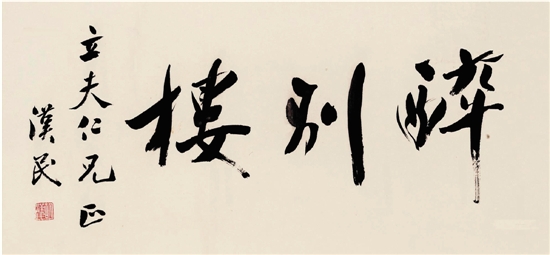 醉別樓
立夫仁兄正
漢民